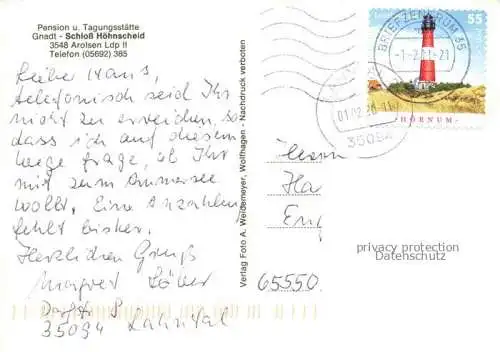 Pension u. Tagungsstätte
Gnadt - Schloß Höhnscheid
3548 Arolsen Ldp II
Telefon (05692) 385
Liebe Hans,
telefonisch seid Ihr
nicht zu erreichen, so
dass ich auf diesem
Wege frage, ob Ihr
mit zum Ammersee
wollt. Eine Anzahlung
fehlt bisher.
Herzlichen Gruß
Margret
35094 Lahntal
Verlag Foto A. Weidemeyer, Wolfhagen - Nachdruck verboten
55
BRIEFZENTRUM 35
HÖRNUM
Herrn
Ha
65550
privacy protection
Datenschutz